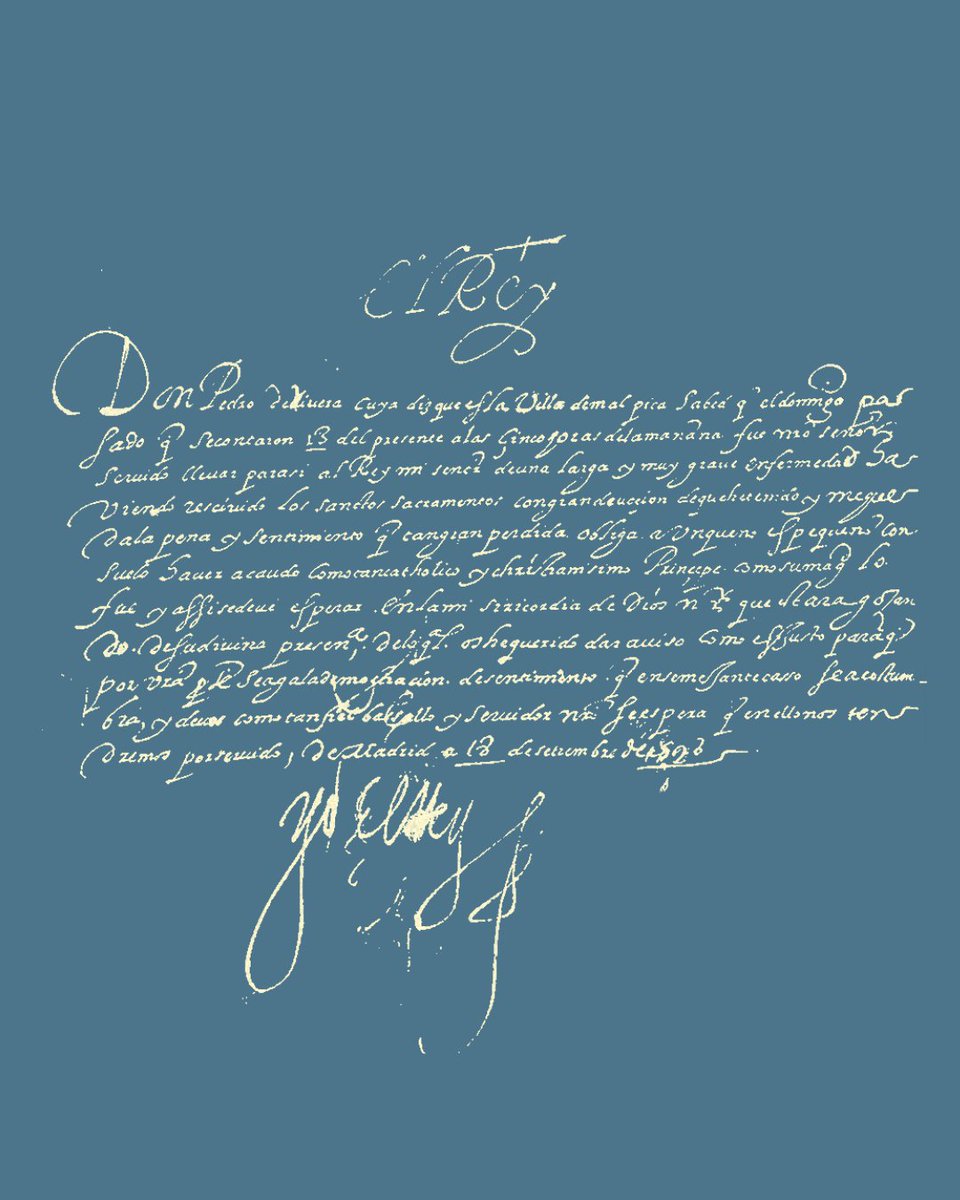 El Rey
Don Pedro de Rivera cuya diz que es la Villa de mal pica Sabed q̃ el domingo pas
sado q̃ se contaron 13 del presente a las cinco horas de la mañana fue nr̃o señor
servido llevar para si al Rey mi señor de una larga y muy grave enfermedad ha
viendo rescivido los sanctos sacramentos con gran devocion de que he tenido y me q̃
da la pena y sentimiento q̃ tan gran perdida obliga aunque no es pequeño con
suelo haver acavado como tan catholico y christianissimo Principe como su mag.d lo
fue y assi se deve esperar en la mi siricordia de Dios nr̃ que estara gozan
do de su divina presen.a de lo q̃l os he querido dar aviso como es justo para q̃
por vr̃a se aga la demostracion de sentimiento q̃ en semejante caso se acostum-
bra, y de vos como tan fiel basallo y servidor nr̃o se espera q̃ en ello nos ten
dremos por servido, de Madrid a 18 de setiembre de 1598
Yo El Rey